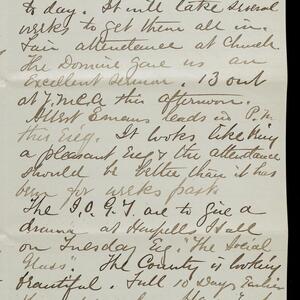 to day. It will take several
weeks to get them all in.
Fair attendance at Church
The Domine gave us an
Excellent sermon. 13 out
at Y.M.C.A this afternoon.
Albert Emans leads in P.M.
this Eve'g. It looks like being
a pleasant Eve'g & the attendance
should be better than it has
been for weeks past
The I.O.G.T. are to give a
drama at Hall
on Tuesday Eve'g. "The Social
Glass". The County is looking
beautiful. Full 10 Days Earlier